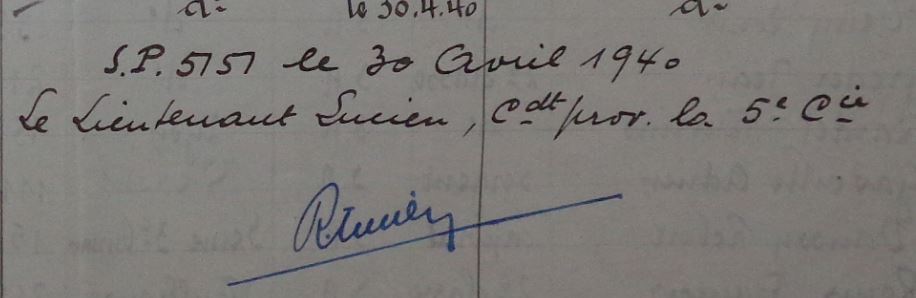 d° le 30.4.40 d°
S.P. 5151 le 30 Avril 1940
Le Lieutenant Lucien, Cdt prov. la 5e Cie